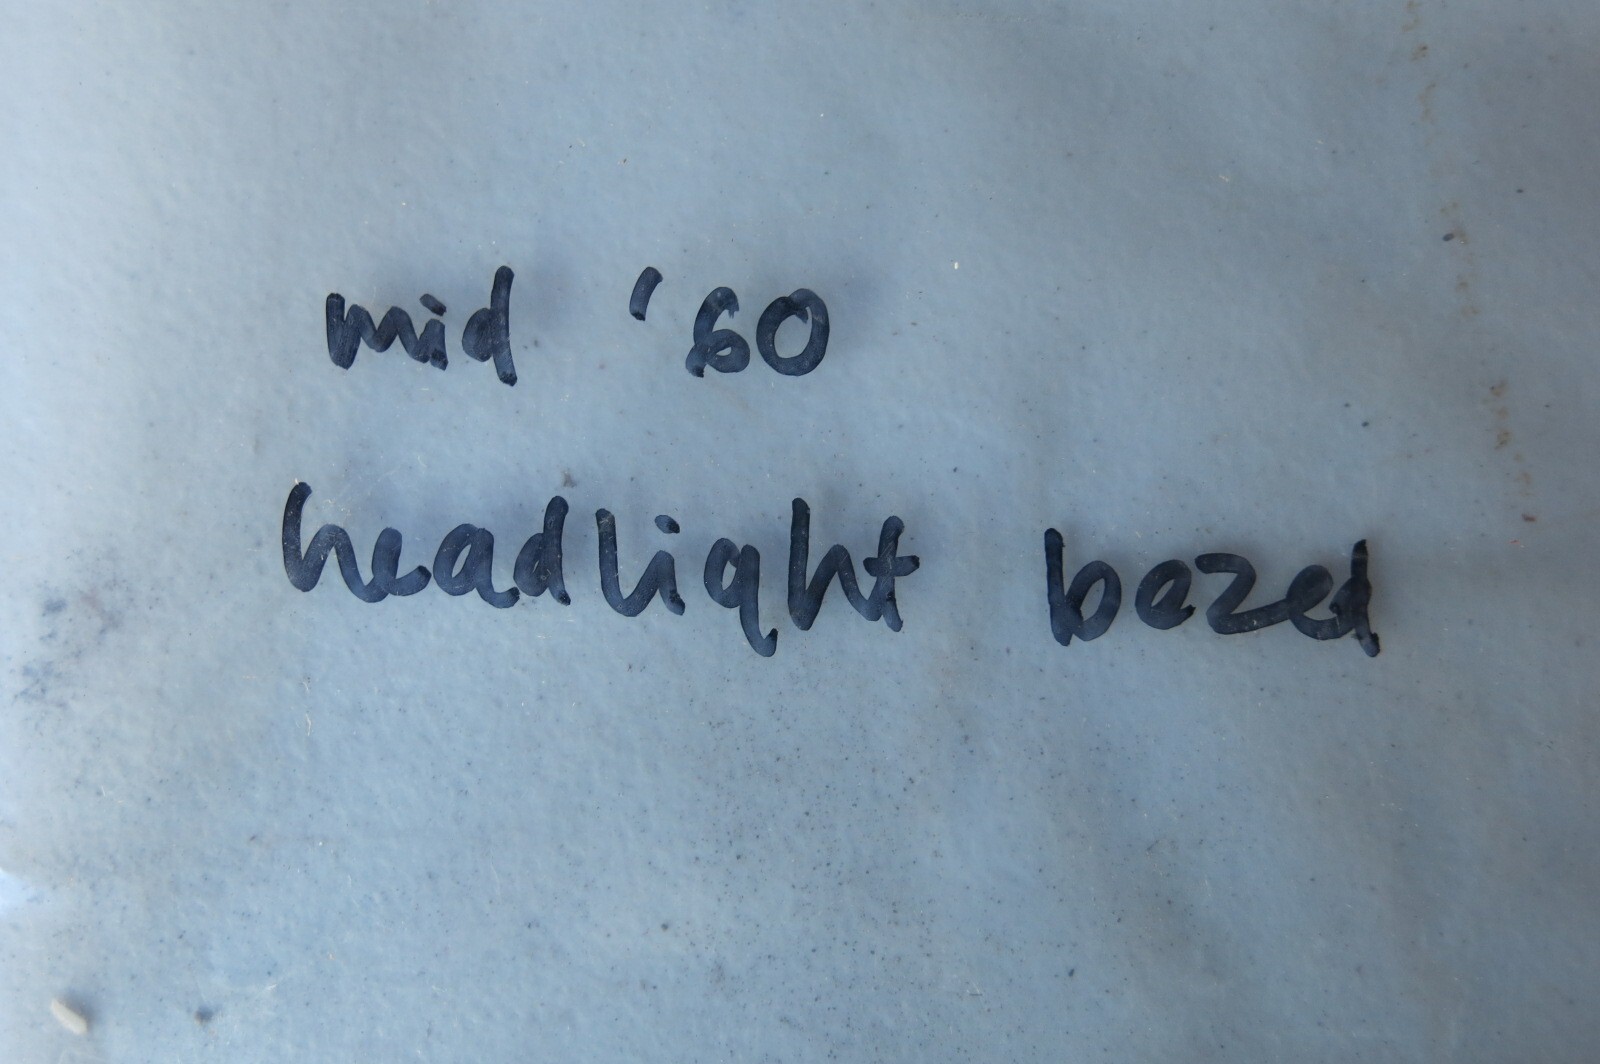 mid '60
headlight bezel